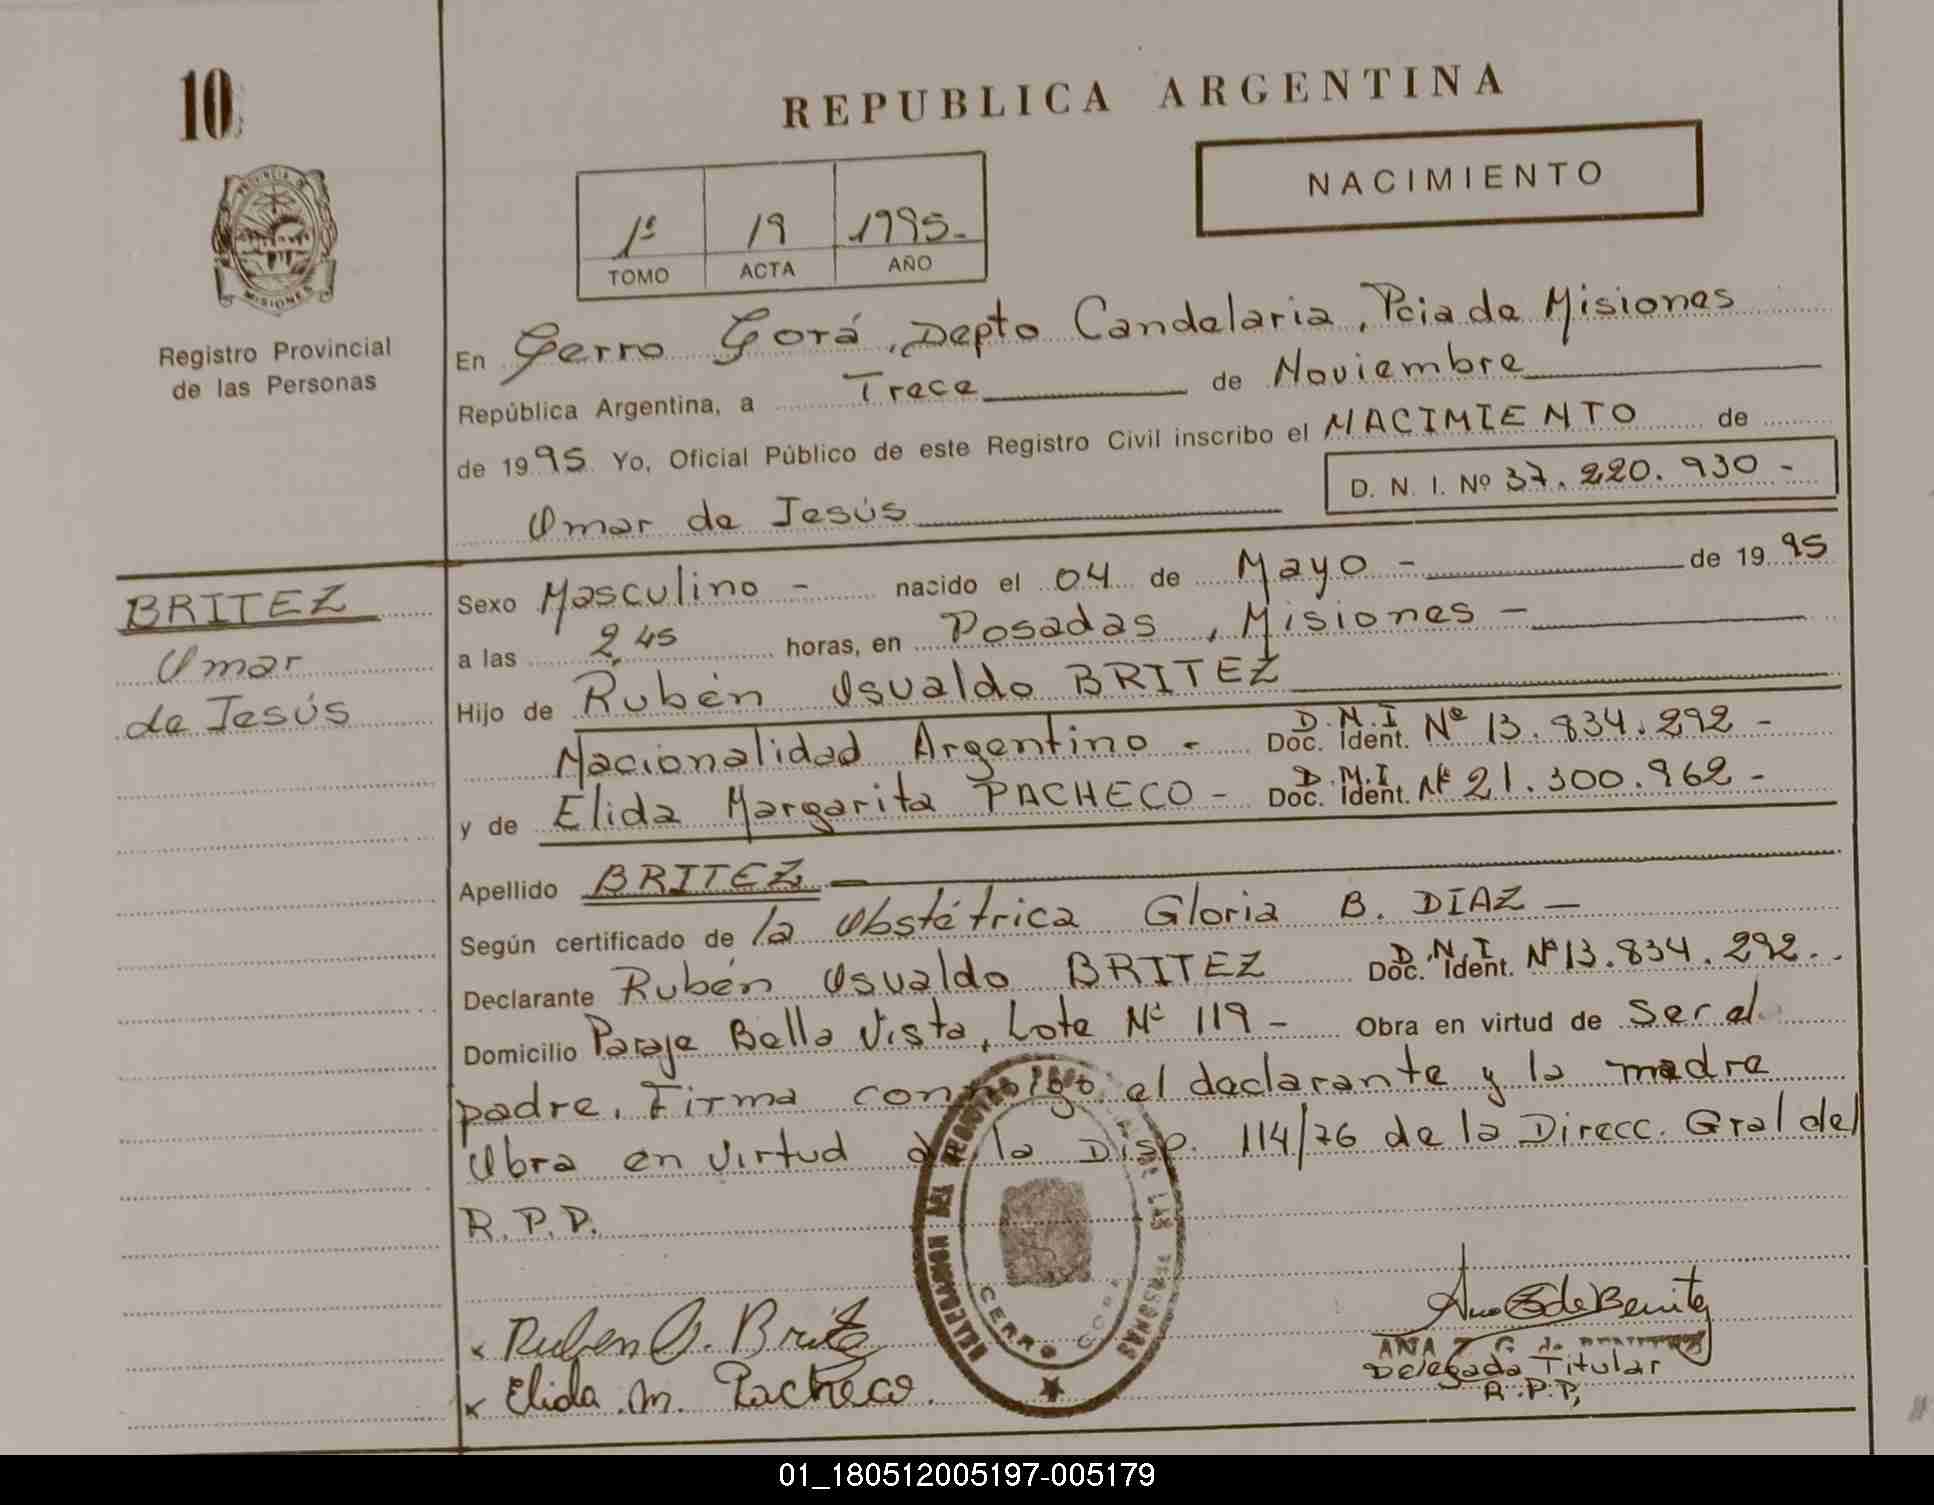 10
REPUBLICA ARGENTINA
NACIMIENTO
1º 19 1995.-
TOMO ACTA AÑO
PROVINCIA DE
MISIONES
Registro Provincial
de las Personas
En Cerro Corá, Depto Candelaria, Pcia de Misiones
República Argentina, a Trece de Noviembre
de 1995 Yo, Oficial Público de este Registro Civil inscribo el NACIMIENTO de
D. N. I. Nº 37.220.930 -
Omar de Jesús
BRITEZ
Omar
de Jesús
Sexo Masculino - nacido el 04 de Mayo - de 1995
a las 2,45 horas, en Posadas, Misiones -
Hijo de Rubén Osvaldo BRITEZ
Nacionalidad Argentino - D.N.I Doc. Ident. Nº 13.834.292 -
y de Elida Margarita PACHECO - D.N.I Doc. Ident. Nº 21.300.962 -
Apellido BRITEZ -
Según certificado de la Obstétrica Gloria B. DIAZ -
Declarante Rubén Osvaldo BRITEZ D.N.I. Doc. Ident. Nº 13.834.292.-
Domicilio Paraje Bella Vista, Lote Nº 119 - Obra en virtud de ser el
padre. Firma conmigo el declarante y la madre
Obra en virtud de la Disp. 114/76 de la Direcc. Gral del
R.P.P.
DELEGACION DEL REGISTRO DE LAS PERSONAS
CERRO CORA
x Ruben O. Britez
x Elida M. Pacheco.
Ana de Benitez
ANA
Delegada Titular
R.P.P,
01_180512005197-005179